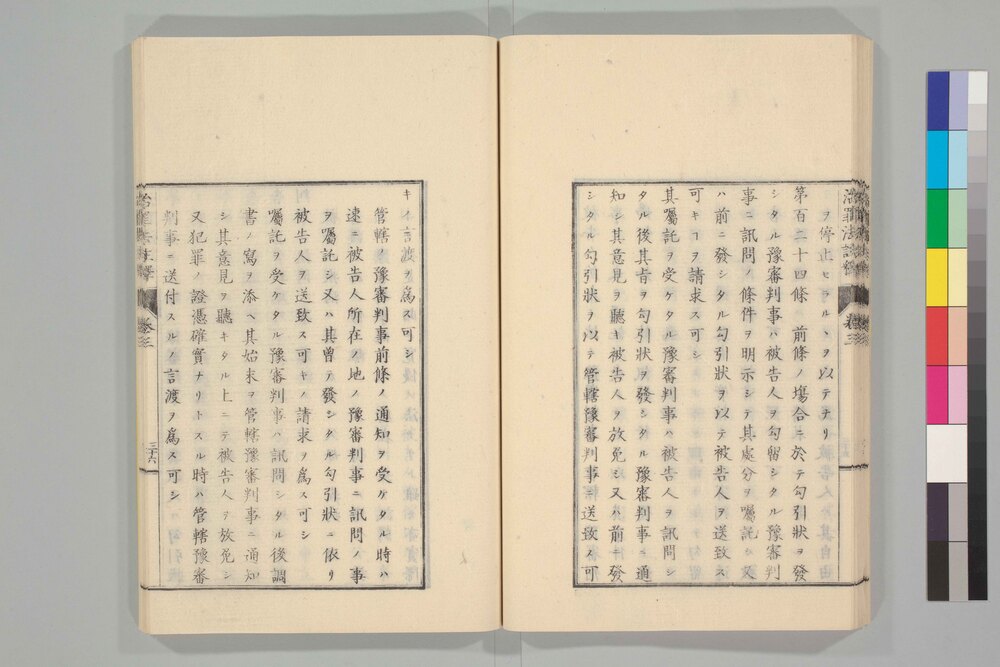 ヲ停止セラルヽヲ以テナリ
第百二十四條 前條ノ塲合ニ於テ勾引狀ヲ發
シタル豫審判事ハ被告人ヲ勾留シタル豫審判
事ニ訊問ノ條件ヲ明示シテ其處分ヲ囑託シ又
ハ前ニ發シタル勾引狀ヲ以テ被告人ヲ送致ス
可キヿヲ請求ス可シ
其囑託ヲ受ケタル豫審判事ハ被告人ヲ訊問シ
タル後其旨ヲ勾引狀ヲ發シタル豫審判事ニ通
知シ其意見ヲ聽キ被告人ヲ放免シ又ハ前ニ發
シタル勾引狀ヲ以テ管轄豫審判事ニ送致ス可
キノ言渡ヲ爲ス可シ
管轄ノ豫審判事前條ノ通知ヲ受ケタル時ハ
速ニ被告人所在ノ地ノ豫審判事ニ訊問ノ事
ヲ囑託シ又ハ其曽テ發シタル勾引狀ニ依リ
被告人ヲ送致ス可キノ請求ヲ爲ス可シ
囑託ヲ受ケタル豫審判事ハ訊問シタル後調
書ノ寫ヲ添ヘ其始末ヲ管轄豫審判事ニ通知
シ其意見ヲ聽キタル上ニテ被告人ヲ放免シ
又犯罪ノ證憑確實ナリトスル時ハ管轄豫審
判事ニ送付スルノ言渡ヲ爲ス可シ
治罪法註釋 卷三 三十六